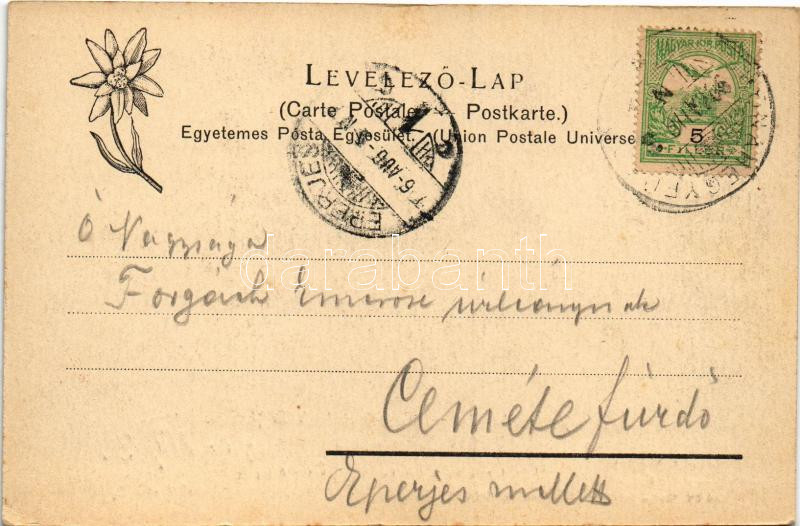 LEVELEZŐ-LAP
(Carte Postale. Postkarte.)
Egyetemes Posta Egyesület. (Union Postale Universe
MAGYAR KIR. POSTA
5
FILLÉR
EPERJES
AUG.
Ő Nagysága
Forgách Emerose
Cemétefürdő
Eperjes mellett
darabanth